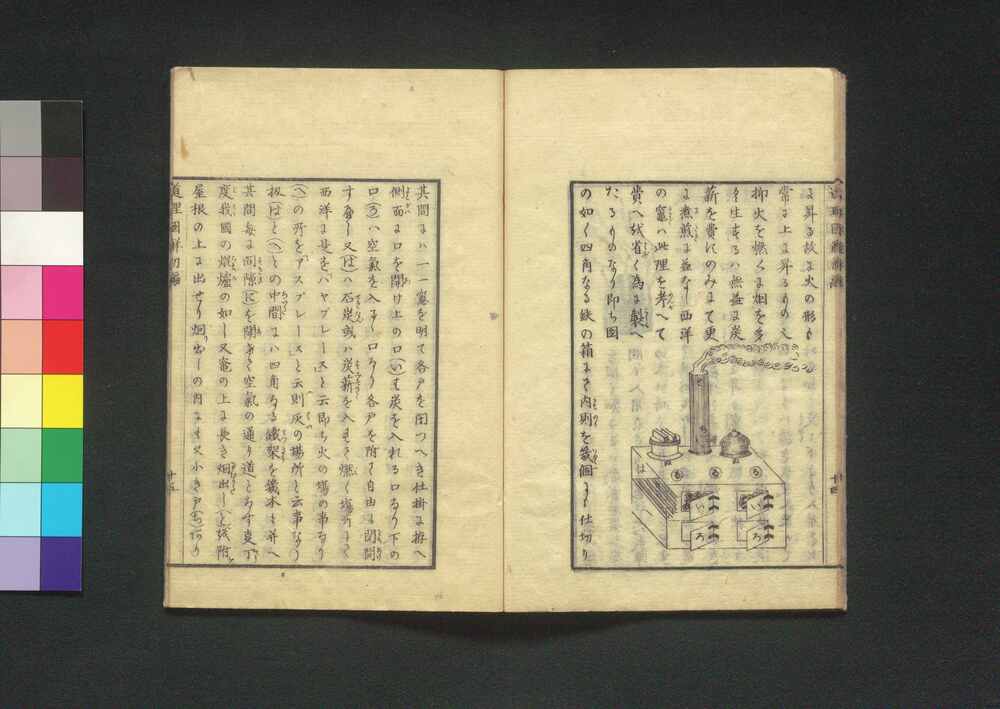 に昇る故に火の形も
常に上に昇るものえ
抑火を燃くに烟を多
く生ずるハ無益に炭
薪を費にのみて更
に煮煎に益なし西洋
の竈ハ此理を考へて
費へを省く為に製へ
たるものなり即ち図
の如く四角なる鉄の箱にて内則を幾個にも仕切り
い
ろ
い
ろ
は
其間にハ一一竈を明て各戸を開つへき仕掛に拵へ
側面に口を開け上の口(い)も炭を入れる口なり下の
口(ろ)ハ空氣を入るゝ口なり各戸を附て自由に開閉
す
又(は)ハ石炭或ハ炭薪を入れて燃く場所にて
西洋に是をハヤプレースと云即ち火の場の事なり
(へ)の所をアスプレースと云則灰の場所と云事なり
扨(は)と(へ)との中間にハ四角なる鐵架を幾本も并へ
其間毎に間隙(に)を開き空氣の通り道となす
度我國の爐の如し又竈の上に長き烟出し(と)を附
屋根の上に出せり烟出しの内にも又小き戸(ち)あり
道理圖解初編
十五
十四